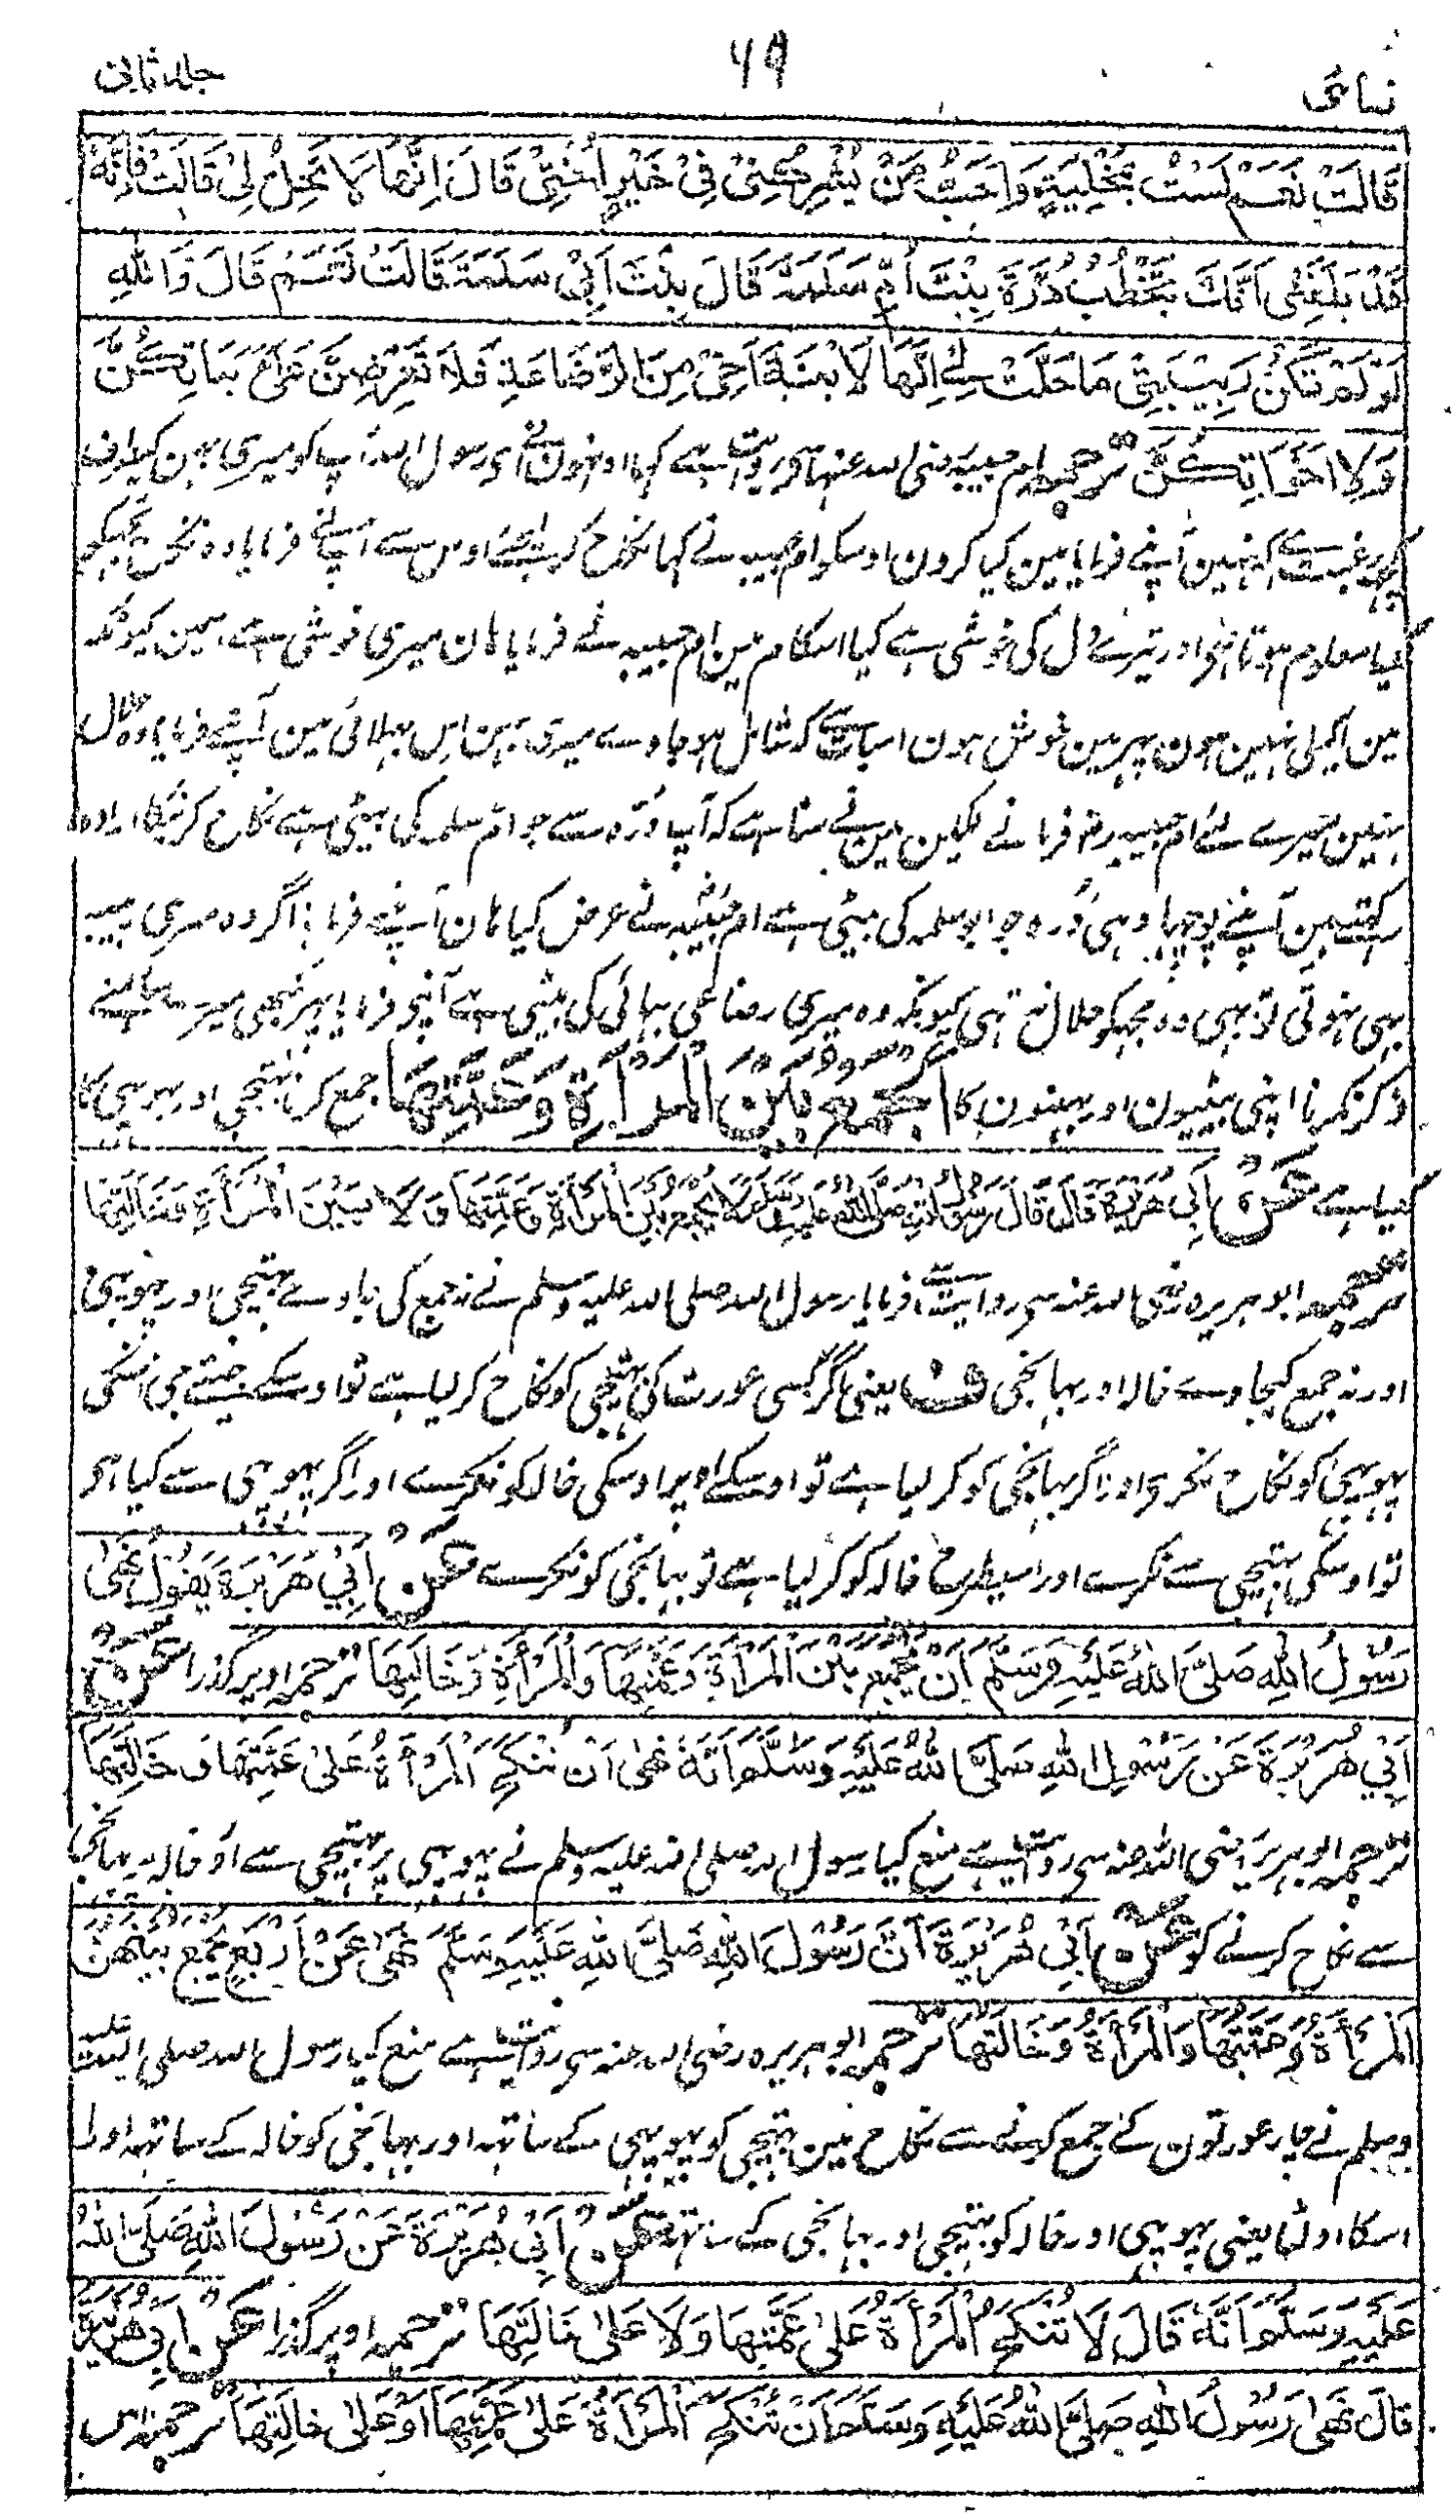 نسائی ۶۹ جلد ثانی
قَالَتْ نَعَمْ لَسْتُ بِمُخْلِيَةٍ وَاَحَبُّ مَنْ يُشْرِكُنِيْ فِيْ خَيْرٍ اُخْتِيْ قَالَ اِنَّهَا لَا تَحِلُّ لِيْ قَالَتْ فَاِنَّهٗ
قَدْ بَلَغَنِيْ اَنَّكَ تَخْطُبُ دُرَّةَ بِنْتَ اُمِّ سَلَمَةَ قَالَ بِنْتَ اَبِيْ سَلَمَةَ قَالَتْ نَعَمْ قَالَ وَاللهِ
لَوْ لَمْ تَكُنْ رَبِيْبَتِيْ مَا حَلَّتْ لِيْ اِنَّهَا لَابْنَةُ اَخِيْ مِنَ الرَّضَاعَةِ فَلَا تَعْرِضْنَ عَلَيَّ بَنَاتِكُنَّ
وَلَا اَخَوَاتِكُنَّ ترجمہ ام حبیبہ رضی اللہ عنہا سی روایت ہے کہا اونہون نے ای رسول اللہ آپ کو میری بہن کیطرف
کچہہ رغبت ہے کہ نہین آپنے فرمایا مین کیا کرون اوسکو ام حبیبہ نے کہا نکاح کر لیجئے اوس سے آپنے فرمایا وہ نکاح تجہکو
کیا معلوم ہوتا ہی اور تیرے دل کی خوشی ہے کیا اس کام مین ام حبیبہ نے فرمایا ہان میری خوشی ہے اسمین کیونکہ
مین اکیلی نہین ہون پہر مین خوش ہون اسبات سے کہ شامل ہو جاوے میری بہن اس بہلائی مین آپنے فرمایا وہ حلال
نہین میرے لئے ام حبیبہ رضہ فرمانے لگین مین نے سنا ہے کہ آپ دُرّہ سے جو ام سلمہ کی بیٹی ہے نکاح کرنیکا ارادہ
رکہتے ہین آپنے پوچہا وہی دُرہ جو ابو سلمہ کی بیٹی ہے ام حبیبہ نے عرض کیا ہان آپنے فرمایا اگر وہ میری ربیبہ
بہی نہوتی تو بہی وہ مجہکو حلال نہ تہی کیونکہ وہ میری رضاعی بہائی کی بیٹی ہے آپنے فرمایا پہر نجھی میرے سامنے
ذکر نکرنا اپنی بیٹیون اور بہنون کا اَلْجَمْعُ بَيْنَ الْمَرْاَةِ وَعَمَّتِهَا جمع کرنا بہتیجی اور پہوپہی کا
کیسا ہے عَنْ اَبِيْ هُرَيْرَةَ قَالَ قَالَ رَسُوْلُ اللهِ صَلَّى اللهُ عَلَيْهِ وَسَلَّمَ لَا يُجْمَعُ بَيْنَ الْمَرْاَةِ وَعَمَّتِهَا وَلَا بَيْنَ الْمَرْاَةِ وَخَالَتِهَا
ترجمہ ابو ہریرہ رضی اللہ عنہ سی روایت ہے فرمایا رسول اللہ صلی اللہ علیہ وسلم نے نہ جمع کی جاوے بہتیجی اور پہوپہی
اور نہ جمع کیجاوے خالہ اور بہانجی ف یعنی اگر کسی عورت کی بہتیجی کو نکاح کر لیا ہے تو اوسکے جیتے جی اسکی
پہوپہی کو نکاح نکری اور اگر بہانجی کو کر لیا ہے تو اوسکے اوپر اوسکی خالہ کو نکرے اور اگر پہوپہی سے کیا ہی
تو اوسکی بہتیجی سے نکرے اور اسیطرح خالہ کو کر لیا ہے تو بہانجی کو نکرے عَنْ اَبِيْ هُرَيْرَةَ يَقُوْلُ نَهٰى
رَسُوْلُ اللهِ صَلَّى اللهُ عَلَيْهِ وَسَلَّمَ اَنْ يُجْمَعَ بَيْنَ الْمَرْاَةِ وَعَمَّتِهَا وَالْمَرْاَةِ وَخَالَتِهَا ترجمہ اوپر گذرا عَنْ
اَبِيْ هُرَيْرَةَ عَنْ رَسُوْلِ اللهِ صَلَّى اللهُ عَلَيْهِ وَسَلَّمَ اَنَّهٗ نَهٰى اَنْ تُنْكَحَ الْمَرْاَةُ عَلٰى عَمَّتِهَا وَ خَالَتِهَا
ترجمہ ابو ہریرہ رضی اللہ عنہ سی روایت ہے منع کیا رسول اللہ صلی اللہ علیہ وسلم نے پہوپہی پر بہتیجی سے اور خالہ پر بہانجی
سے نکاح کرنے کو عَنْ اَبِيْ هُرَيْرَةَ اَنَّ رَسُوْلَ اللهِ صَلَّى اللهُ عَلَيْهِ وَسَلَّمَ نَهٰى عَنْ اَرْبَعٍ يُجْمَعُ بَيْنَهُنَّ
اَلْمَرْاَةُ وَعَمَّتُهَا وَالْمَرْاَةُ وَخَالَتُهَا ترجمہ ابو ہریرہ رضی اللہ عنہ سی روایت ہے منع کیا رسول اللہ صلی اللہ علیہ
وسلم نے چار عورتون کے جمع کرنے سے نکاح مین بہتیجی کو پہوپہی کے ساتہہ اور بہانجی کو خالہ کے ساتہہ اور
اسکا اولٹا یعنی پہوپہی اور خالہ کو بہتیجی اور بہانجی کے ساتہہ عَنْ اَبِيْ هُرَيْرَةَ عَنْ رَسُوْلِ اللهِ صَلَّى اللهُ
عَلَيْهِ وَسَلَّمَ اَنَّهٗ قَالَ لَا تُنْكَحُ الْمَرْاَةُ عَلٰى عَمَّتِهَا وَلَا عَلٰى خَالَتِهَا ترجمہ اوپر گذرا عَنْ اَبِيْ هُرَيْرَةَ
قَالَ نَهٰى رَسُوْلُ اللهِ صَلَّى اللهُ عَلَيْهِ وَسَلَّمَ اَنْ تُنْكَحَ الْمَرْاَةُ عَلٰى عَمَّتِهَا اَوْ عَلٰى خَالَتِهَا ترجمہ اس